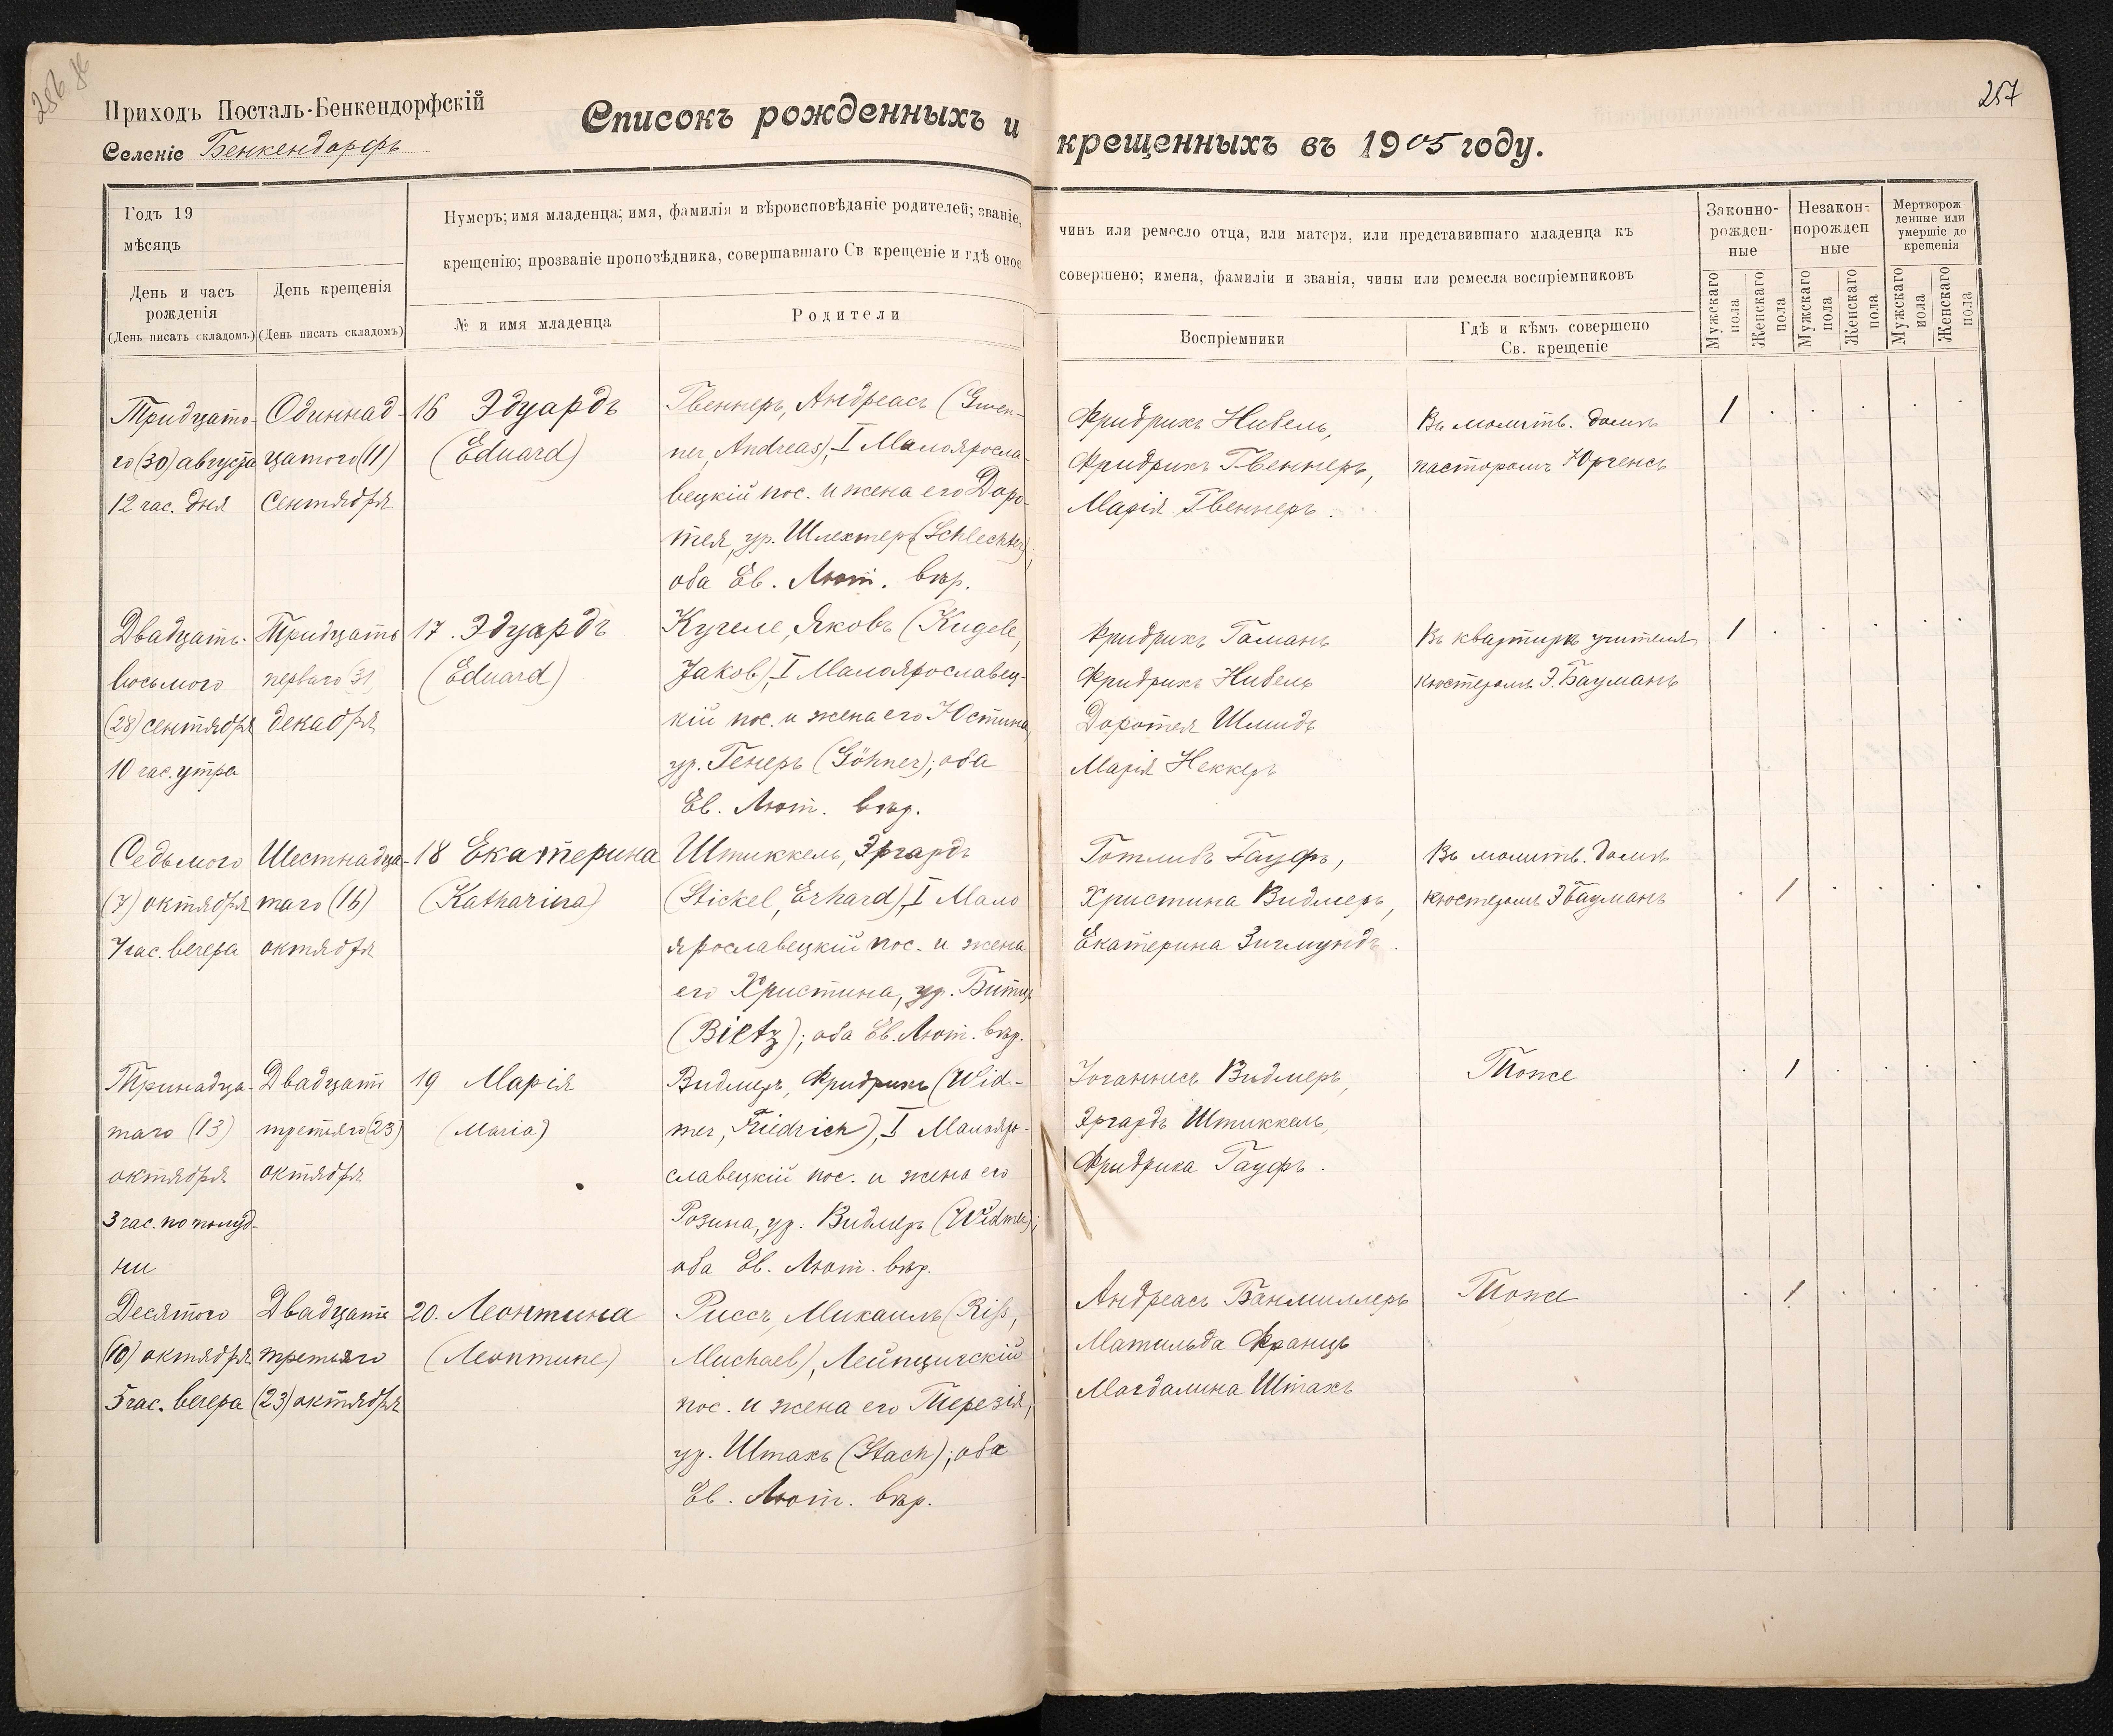 257
Приходъ Посталь-Бенкендорфскій
Селеніе Бенкендорфъ
Списокъ рожденныхъ и крещенныхъ въ 1905 году.
Годъ 19
мѣсяцъ
День и часъ
рожденія
(День писать складомъ)
День крещенія
(День писать складомъ)
Нумеръ; имя младенца; имя, фамилія и вѣроисповѣданіе родителей; званіе,
чинъ или ремесло отца, или матери, или представившаго младенца къ
крещенію; прозваніе проповѣдника, совершавшаго Св крещеніе и гдѣ оное
совершено; имена, фамиліи и званія, чины или ремесла воспріемниковъ
№ и имя младенца
Родители
Воспріемники
Гдѣ и кѣмъ совершено
Св. крещеніе
Законно-
рожден-
ные
Незакон-
норожден
ные
Мертворож-
денные или
умершіе до
крещенія
Мужскаго
пола
Женскаго
пола
Мужскаго
пола
Женскаго
пола
Мужскаго
пола
Женскаго
пола
Тридцато-
го (30) августа
12 час. дня
Одиннад-
цатого (11)
Сентября
16 Эдуардъ
(Eduard)
Гвеннеръ, Андреасъ (Gwen-
ner, Andreas), I Малояросла-
вецкій пос. и жена его Доро-
тея, ур. Шлехтеръ (Schlechter);
оба Ев. Лют. вѣр.
Фридрихъ Нибель,
Фридрихъ Гвеннеръ,
Марія Гвеннеръ.
Въ молитв. домѣ
пасторомъ Юргенсъ
1
Двадцать-
восьмого
(28) сентября
10 час. утра
Тридцать
перваго (31)
декабря
17. Эдуардъ
(Eduard)
Кугеле, Яковъ (Kugele,
Jakob), I Малоярославец-
кій пос. и жена его Юстина,
ур. Генеръ (Göhner); оба
Ев. Лют. вѣр.
Фридрихъ Таманъ
Фридрихъ Нибель
Доротея Шмидъ
Марія Неккеръ
Въ квартирѣ учителя
кюстеромъ Э. Бауманъ
1
Седьмого
(7) октября
7 час. вечера
Шестнадца-
таго (16)
октября
18 Екатерина
(Katharina)
Штиккель, Эргардъ
(Stickel, Erhard), I Мало
ярославецкій пос. и жена
его Христина, ур. Битцъ
(Bietz); оба Ев. Лют. вѣр.
Готлибъ Гауфъ,
Христина Видмеръ,
Екатерина Зигмундъ.
Въ молитв. домѣ
кюстеромъ Э Бауманъ
1
Тринадца-
таго (13)
октября
3 час. по полуд-
ни
Двадцать
третьяго (23)
октября
19 Марія
(Maria)
Видмеръ, Фридрихъ (Wid-
mer, Friedrich), I Малояро-
славецкій пос. и жена его
Розина, ур. Видмеръ (Widmer);
оба Ев. Лют. вѣр.
Іоганнесъ Видмеръ,
Эргардъ Штиккель,
Фридрика Гауфъ.
Тоже
1
Десятого
(10) октября
5 час. вечера
Двадцать
третьяго
(23) октября
20. Леонтина
(Леонтине)
Риссъ, Михаилъ (Riß,
Michael), Лейпцигскій
пос. и жена его Терезія,
ур. Штахъ (Stach); оба
Ев. Лют. вѣр.
Андреасъ Банмиллеръ
Матильда Францъ
Магдалина Штахъ
Тоже
1